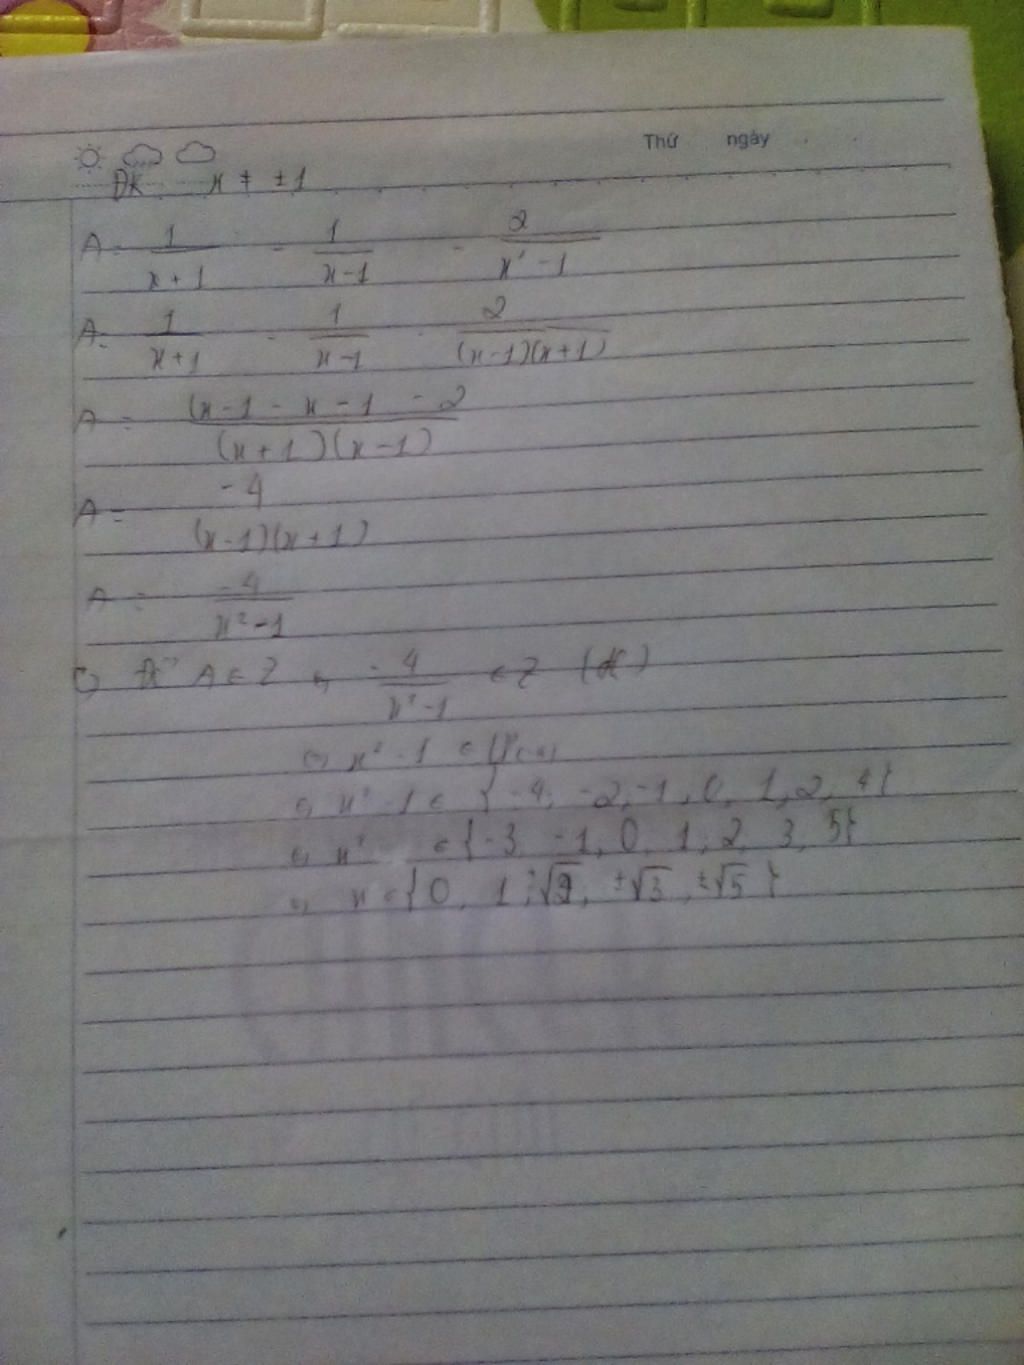 Thứ ngày
ĐK x ≠ ±1
A = 1/(x+1) - 1/(x-1) - 2/(x²-1)
A = 1/(x+1) - 1/(x-1) - 2/((x-1)(x+1))
A = (x-1 - x-1 - 2/((x+1)(x-1))
A = -4 (x-1)(x+1)
A = -4/(x²-1)
A ∈ Z -4/(x²-1) ∈ Z
⇔ x² - 1 ∈
⇔ x² - 1 ∈ { -4; -2, -1, 0, 1, 2, 4}
⇔ x² ∈ {-3 -1, 0, 1, 2, 3, 5}
⇔ x ∈ {0, 1, ±√2, ±√3, ±√5}